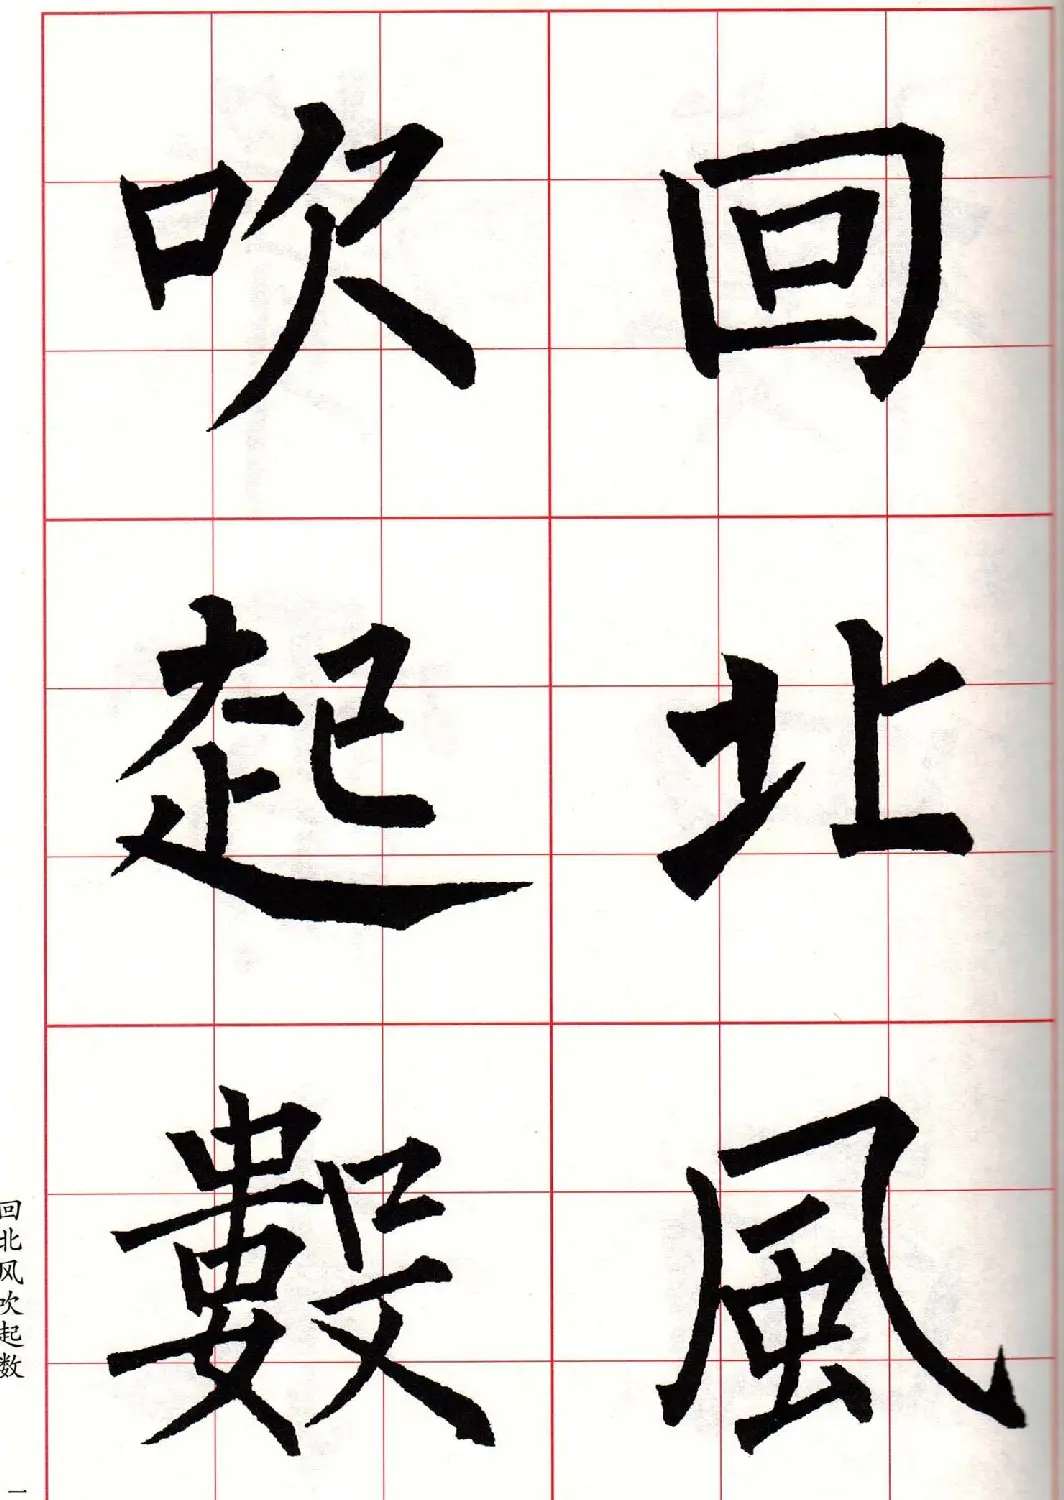 回北風
吹起數
回北风吹起数
一